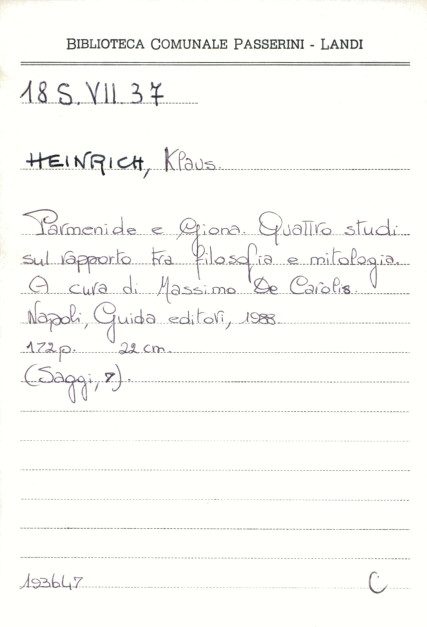 BIBLIOTECA COMUNALE PASSERINI - LANDI
18 S. VII 37
HEINRICH, Klaus.
Parmenide e Giona. Quattro studi
sul rapporto tra filosofia e mitologia.
A cura di Massimo De Carolis.
Napoli, Guida editori, 1988.
172 p. 22 cm.
(Saggi, 7).
193647 C